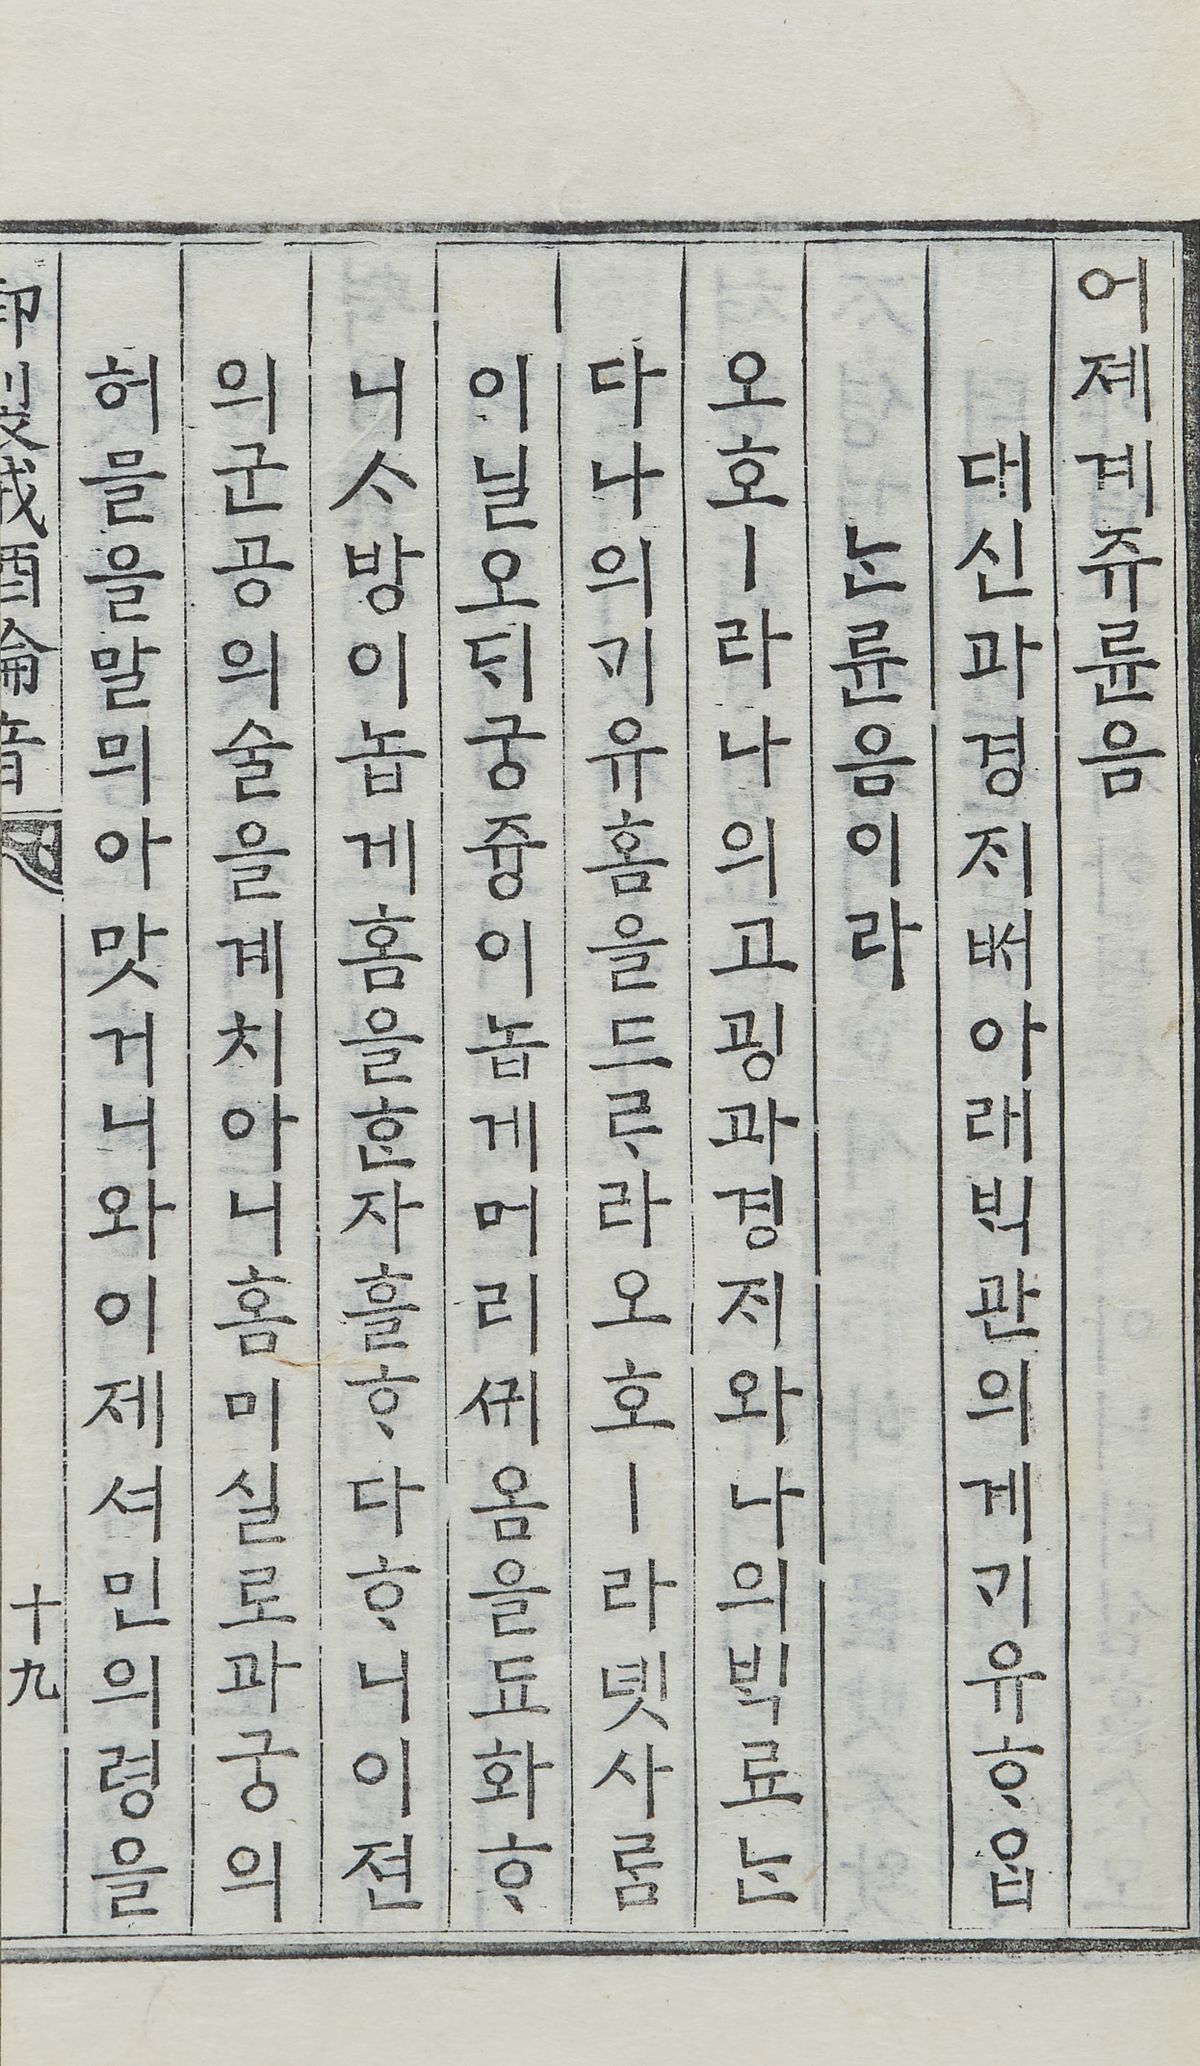 어졔계쥬륜음
대신과경ᄌᆡᄡᅥ아래ᄇᆡᆨ관의게기유ᄒᆞᄋᆞᆸ
ᄂᆞᆫ륜음이라
오호ㅣ라나의고굉과경ᄌᆡ와나의ᄇᆡᆨ료ᄂᆞᆫ
다나의기유홈을드ᄅᆞ라오호ㅣ라녯사ᄅᆞᆷ
이닐오ᄃᆡ궁즁이놉게머리셰옴을됴화ᄒᆞ
니ᄉᆞ방이놉게홈을ᄒᆞᆫ자흘ᄒᆞ다ᄒᆞ니이젼
의군공의술을계치아니홈미실로과궁의
허믈을말믜아맛거니와이제셔민의령을
御製戒酒綸音
十九